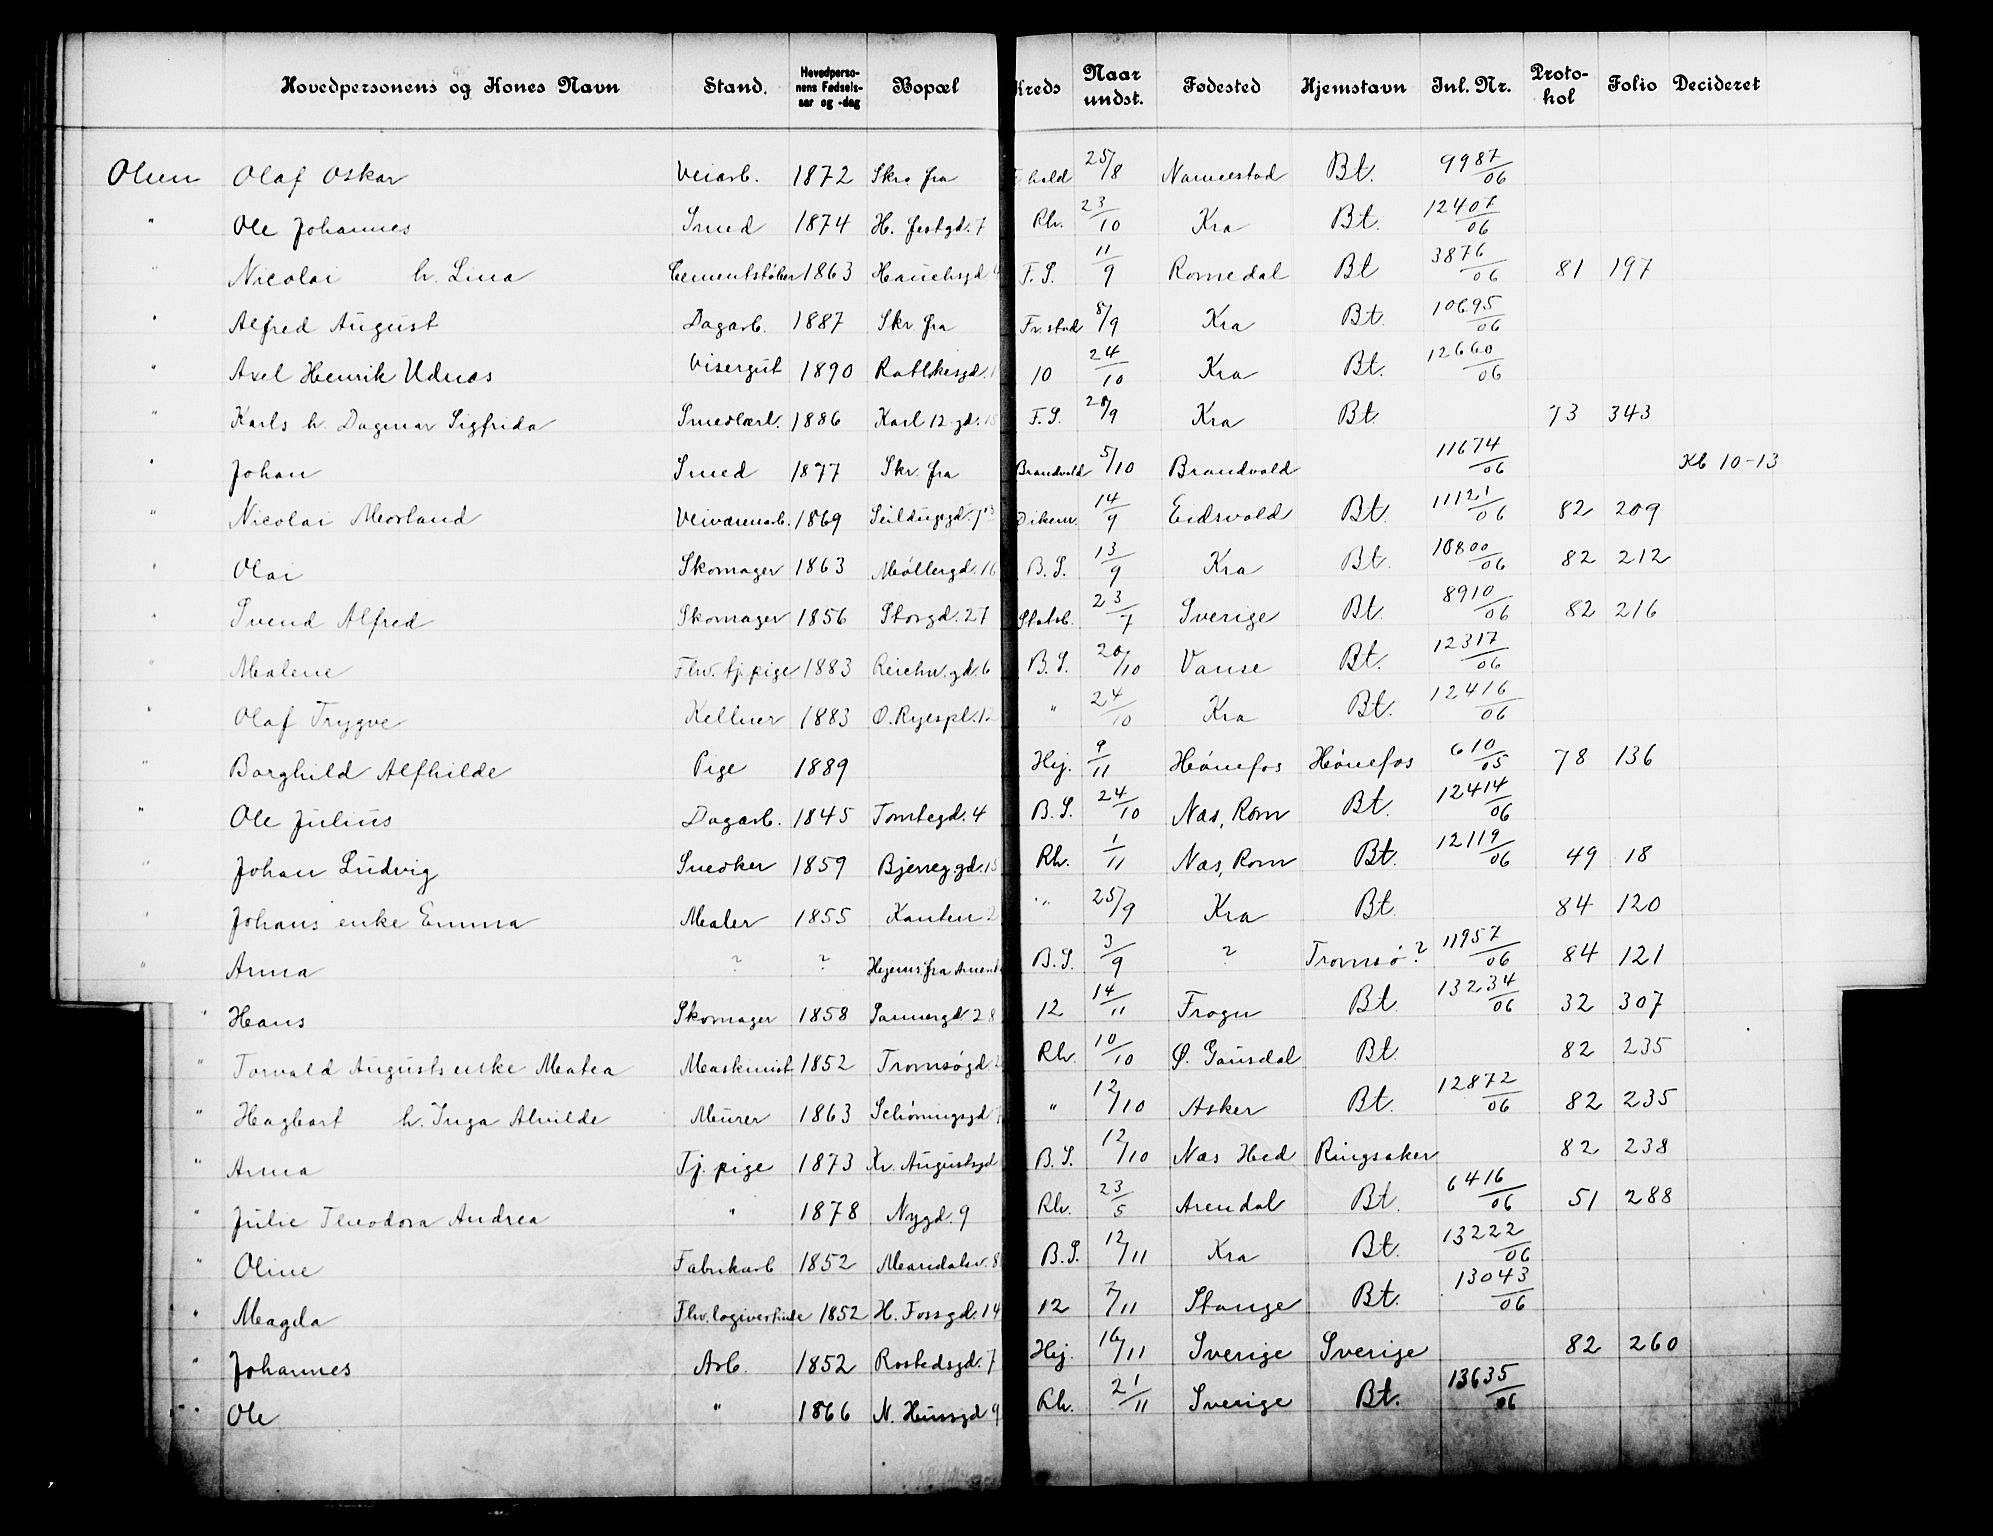 Hovedpersonens og Kones Navn Stand. Hovedpersonens Fødselsaar og -dag Bopæl Kreds Naar undst. Fødested Hjemstavn Inl. Nr. Protokol Folio Decideret
Olsen Olaf Oskar Veiarb. 1872 Skr. fra 25/8 Bt. 9987/06
" Ole Johannes Smed 1874 H. festgd. 7 Rh. 23/10 Kra Bt. 12407/06
" Nicolai h. Lina Cementstøber 1863 Hauchsgd 4 F.S. 11/9 Romedal Bt 3876/06 81 197
" Alfred August Dagarb. 1887 Skr. fra Fr.stad 8/9 Kra Bt. 10695/06
" Axel Henrik Udnæs Visergut 1890 Rathkesgd. 10 24/10 Kra Bt. 12660/06
" Karls h. Dagmar Sigfrida Smedlærl. 1886 Karl 12 gd. 15 F.S. 28/9 Kra Bt. 73 343
" Johan Smed 1877 Skr. fra Brandvold 5/10 Brandvold 11674/06 Kb 10-13
" Nicolai Morland 1869 Seildugsgd. Dikem. 14/9 Eidsvold Bt. 11121/06 82 209
" Olai Skomager 1863 Møllergd. 16 B.S. 13/9 Kra Bt. 10800/06 82 212
" Svend Alfred Skomager 1856 Storgd. 27 Statsb. 23/7 Sverige Bt. 8910/06 82 216
" Malene Fhv. tj. pige 1883 Reichw. gd. 6 B.S. 20/10 Vanse Bt. 12317/06
" Olaf Trygve Kellner 1883 O. Ryespl. 12 " 24/10 Kra Bt. 12416/06
" Borghild Alfhilde Pige 1889 Hej. 9/11 Hønefos Hønefos 610/05 78 136
" Ole Julius Dagarb. 1845 Tomtegd. 4 B.S. 24/10 Næs, Rom Bt. 12414/06
" Johan Ludvig Snedker 1859 Bjerreg.gd. 15 Rh. 1/11 Næs, Rom Bt. 12119/06 49 18
" Johans enke Emma Maler 1855 Kanten 2 " 25/9 Kra Bt. 84 120
" Anna ? ? Hjems. fra B.S. 3/9 ? Tromsø? 11957/06 84 121
" Hans Skomager 1858 Sannergd 28 12 14/11 Frogn Bt 13234/06 32 307
" Torvald Augusts enke Matea Maskinist 1852 Tromsøgd. 2 Rh. 10/10 Ø. Gausdal Bt. 82 235
" Hagbart h. Inga Alvilde Murer 1863 Schøningsgd " 12/10 Asker Bt. 12872/06 82 235
" Anna Tj. pige 1873 Kr. Augustsgd B.S. 12/10 Næs Hed Ringsaker 82 238
" Julie Theodora Andrea " 1878 Nygd. 9 Rh. 23/5 Arendal Bt. 6416/06 51 288
" Oline Fabrikarb 1852 Mandalsv. 8 B.S. 12/11 Kra Bt. 13222/06
" Magda Fhv. logivertinde 1852 H. Fossgd. 14 12 7/11 Stange Bt. 13043/06
" Johannes Arb. 1852 Rostedsgd. 7 Hej. 16/11 Sverige Sverige 82 260
" Ole " 1866 N. Hussgd 9 Rh. 21/11 Sverige Bt. 13635/06